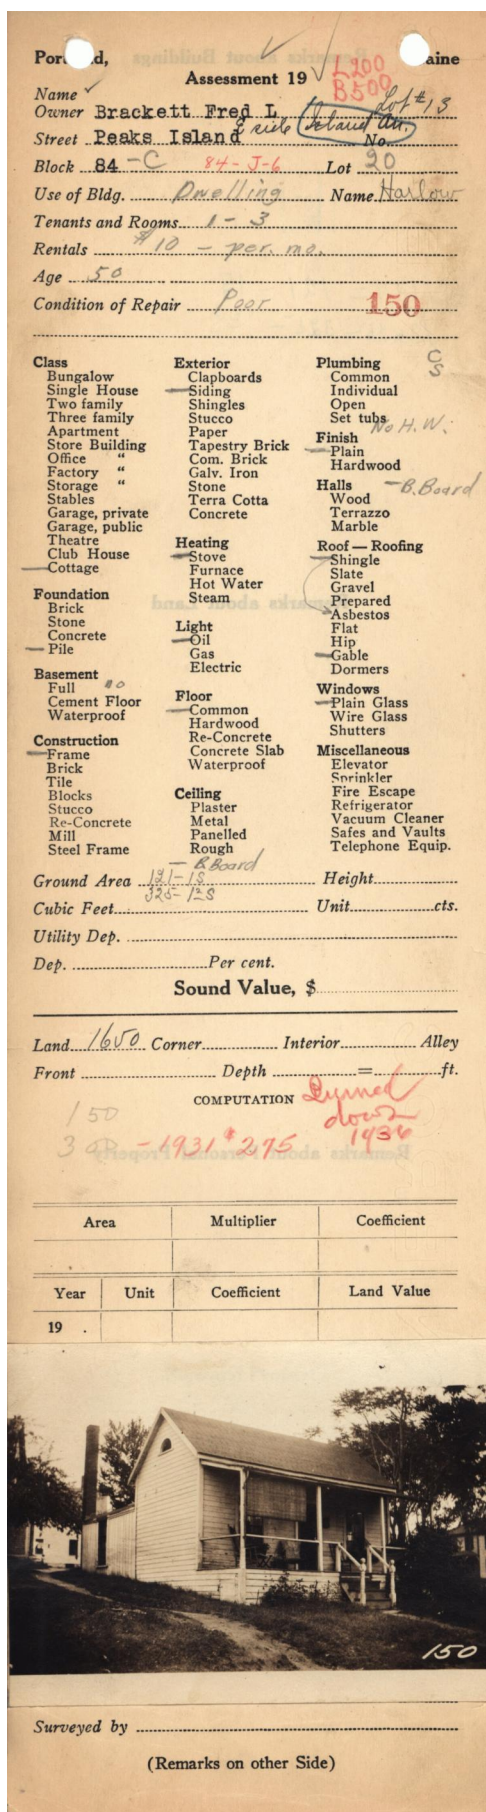 Portland, Maine
Assessment 19
L200
B500
Lot #13
Name
Owner Brackett Fred L
Street Peaks Island E side Island Av. No.
Block 84 -C 84-J-6 Lot 20
Use of Bldg. Dwelling Name Harlow
Tenants and Rooms 1-3
Rentals $10 - per. mo.
Age 50
Condition of Repair Poor 150
Class
Bungalow
Single House
Two family
Three family
Apartment
Store Building
Office "
Factory "
Storage "
Stables
Garage, private
Garage, public
Theatre
Club House
Cottage
Foundation
Brick
Stone
Concrete
Pile
Basement
Full no
Cement Floor
Waterproof
Construction
Frame
Brick
Tile
Blocks
Stucco
Re-Concrete
Mill
Steel Frame
Exterior
Clapboards
Siding
Shingles
Stucco
Paper
Tapestry Brick
Com. Brick
Galv. Iron
Stone
Terra Cotta
Concrete
Heating
Stove
Furnace
Hot Water
Steam
Light
Oil
Gas
Electric
Floor
Common
Hardwood
Re-Concrete
Concrete Slab
Waterproof
Ceiling
Plaster
Metal
Panelled
Rough
- B.Board
Plumbing C
S
Common
Individual
Open
Set tubs No H.W.
Finish
Plain
Hardwood
Halls - B.Board
Wood
Terrazzo
Marble
Roof — Roofing
Shingle
Slate
Gravel
Prepared
Asbestos
Flat
Hip
Gable
Dormers
Windows
Plain Glass
Wire Glass
Shutters
Miscellaneous
Elevator
Sprinkler
Fire Escape
Refrigerator
Vacuum Cleaner
Safes and Vaults
Telephone Equip.
Ground Area 121-1S Height
325-1½S
Cubic Feet Unit cts.
Utility Dep.
Dep. Per cent.
Sound Value, $
Land 1650 Corner Interior Alley
Front Depth = ft.
COMPUTATION Burned
down
1936
150
-1931 $275
Area Multiplier Coefficient
Year Unit Coefficient Land Value
19 .
150
Surveyed by
(Remarks on other Side)